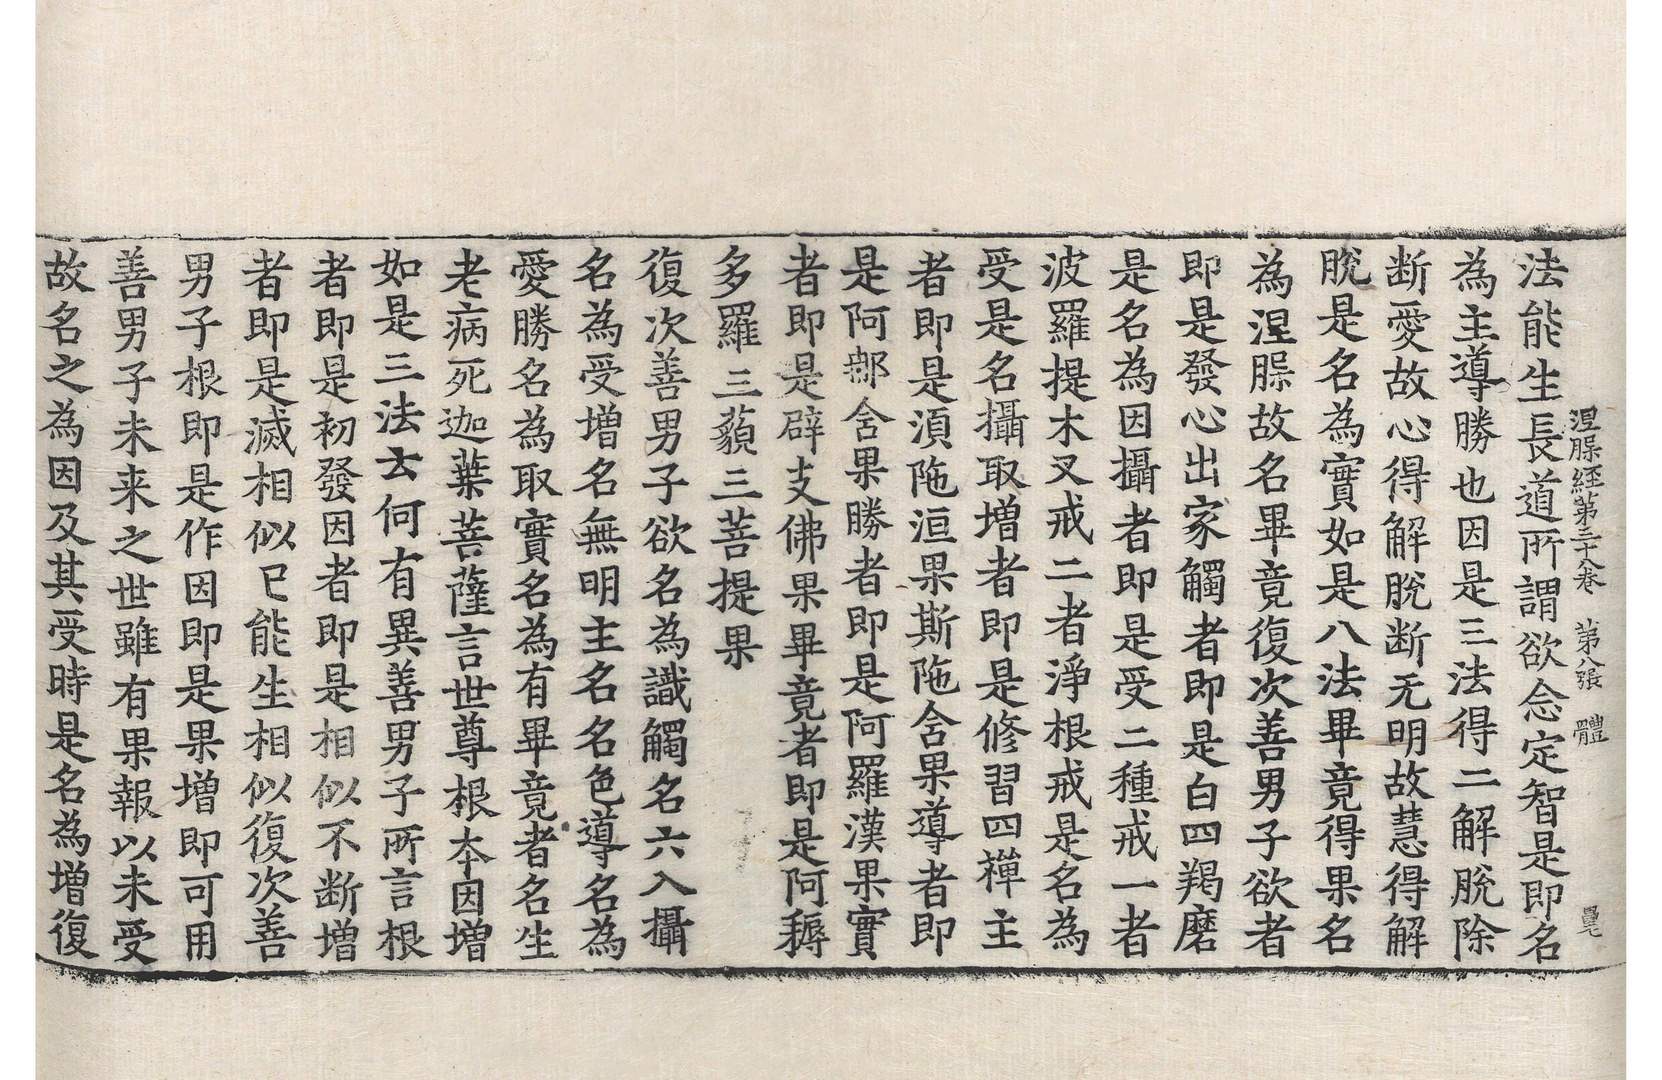 涅槃經第三十八卷 第八張 體
法能生長道所謂欲念定智是即名
為主導勝也因是三法得二解脫除
断愛故心得解脫断无明故慧得解
脫是名為實如是八法畢竟得果名
為涅槃故名畢竟復次善男子欲者
即是發心出家觸者即是白四羯磨
是名為因攝者即是受二種戒一者
波羅提木叉戒二者淨根戒是名為
受是名攝取增者即是修習四禪主
者即是湏陁洹果斯陁含果導者即
是阿那含果勝者即是阿羅漢果實
者即是辟支佛果畢竟者即是阿耨
多羅三藐三菩提果
復次善男子欲名為識觸名六入攝
名為受增名無明主名名色導名為
愛勝名為取實名為有畢竟者名生
老病死迦葉菩薩言世尊根本因增
如是三法云何有異善男子所言根
者即是初發因者即是相似不断增
者即是滅相似已能生相似復次善
男子根即是作因即是果增即可用
善男子未来之世雖有果報以未受
故名之為因及其受時是名為增復